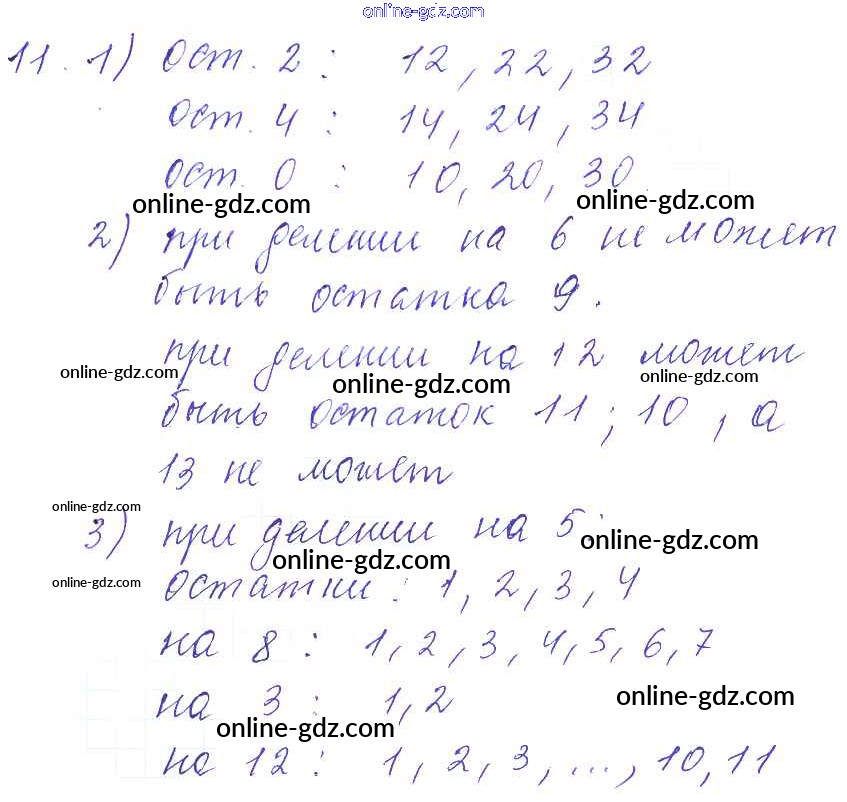 online-gdz.com
11. 1) ост. 2 : 12, 22, 32
ост. 4 : 14, 24, 34
ост. 0 : 10, 20, 30
online-gdz.com online-gdz.com
2) при делении на 6 не может
быть остатка 9.
при делении на 12 может
online-gdz.com online-gdz.com online-gdz.com
быть остаток 11; 10, а
13 не может
online-gdz.com
3) при делении на 5:
online-gdz.com online-gdz.com
online-gdz.com
остатки : 1, 2, 3, 4
на 8 : 1, 2, 3, 4, 5, 6, 7
на 3 : 1, 2
online-gdz.com
online-gdz.com
на 12 : 1, 2, 3, ..., 10, 11